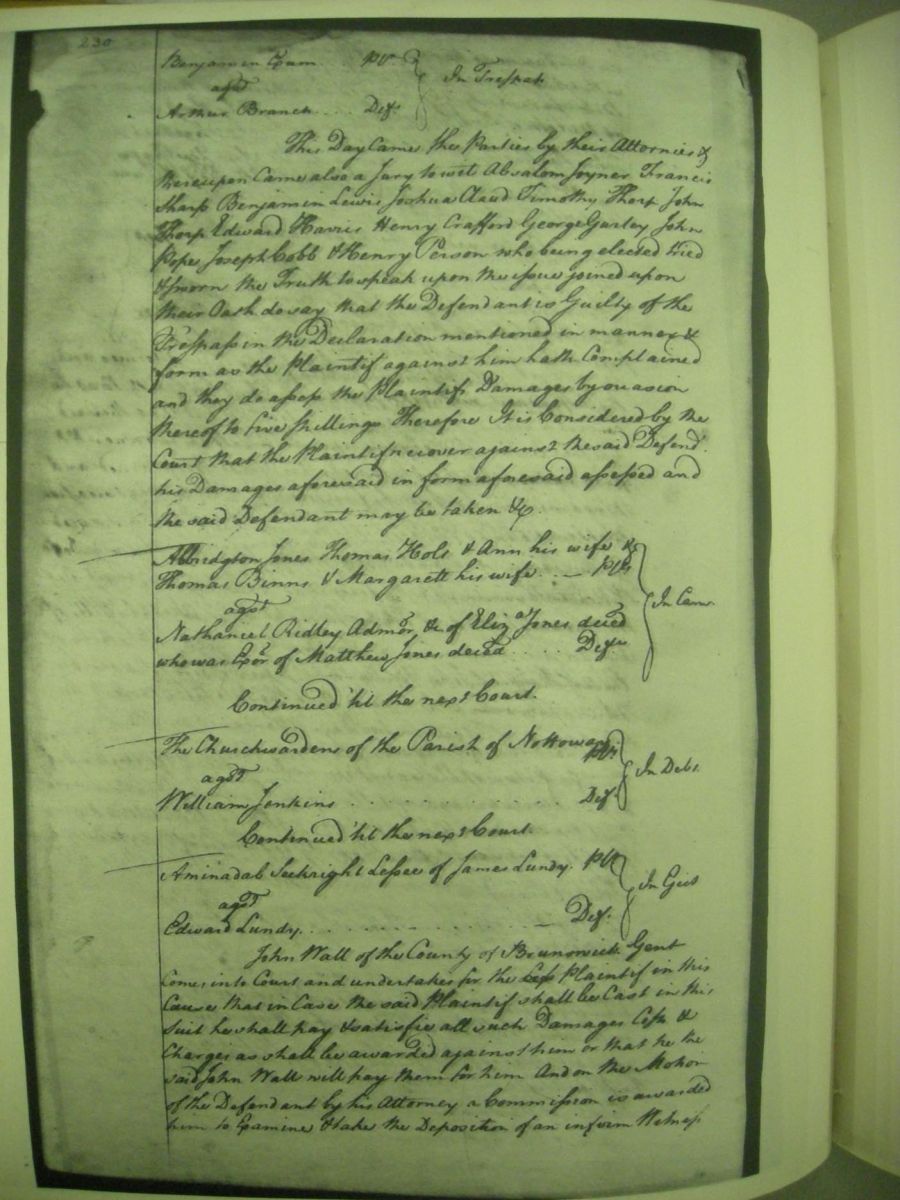 230
Benjamin Exum . . Plt
agst
In Trespass
Arthur Branch . . . . Deft
This Day Came the Parties by their Attornies &
thereupon Came also a Jury to wit Absalom Joyner Francis
Sharp Benjamin Lewis Joshua Claud Timothy Thorp John
Thorp Edward Harris Henry Crafford George Gurley John
Pope Joseph Cobb & Henry Person who being elected tried
& sworn the Truth to speak upon the issue joined upon
their Oath do say that the Defendant is Guilty of the
Trespass in the Declaration mentioned in manner &
form as the Plaintif against him hath Complained
and they do assess the Plaintifs Damages by occasion
thereof to five shillings Therefore It is Considered by the
Court that the Plaintif recover against the said Defend.
his Damages aforesaid in form aforesaid assessed and
the said Defendant may be taken &c.
Albridgton Jones Thomas Hols & Ann his wife &
Thomas Binns & Margarett his wife . . — Plts
agst
In Canc
Nathaniel Ridley Admor, &c of Eliza Jones deced
who was Exor of Matthew Jones deced . . . . Defts
Continued 'til the next Court.
The Churchwardens of the Parish of Nottoway Plts
agst
In Debt.
William Jenkins . . . . . . . . . . . Deft
Continued 'til the next Court.
Aminadab Seekright Lessee of James Lundy. Plt
agst
In Eject
Edward Lundy. . . . . . . . . . . . — Deft.
John Wall of the County of Brunswick Gent
Comes into Court and undertakes for the Plaintif in this
Cause that in Case the said Plaintif shall be Cast in this
Suit he shall pay & satisfie all such Damages Costs &
Charges as shall be awarded against him or that he the
said John Wall will pay them for him And on the Motion
of the Defendant by his Attorney a Commission is awarded
him to Examine & take the Deposition of an infirm Witness